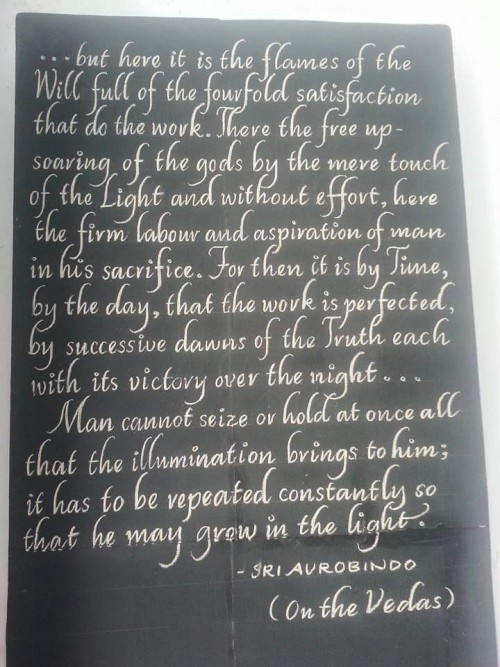 ...but here it is the flames of the
Will full of the fourfold satisfaction
that do the work. There the free up-
soaring of the gods by the mere touch
of the Light and without effort, here
the firm labour and aspiration of man
in his sacrifice. For then it is by Time,
by the day, that the work is perfected,
by successive dawns of the Truth each
with its victory over the night...
Man cannot seize or hold at once all
that the illumination brings to him;
it has to be repeated constantly so
that he may grow in the light.
- SRI AUROBINDO
(On the Vedas)